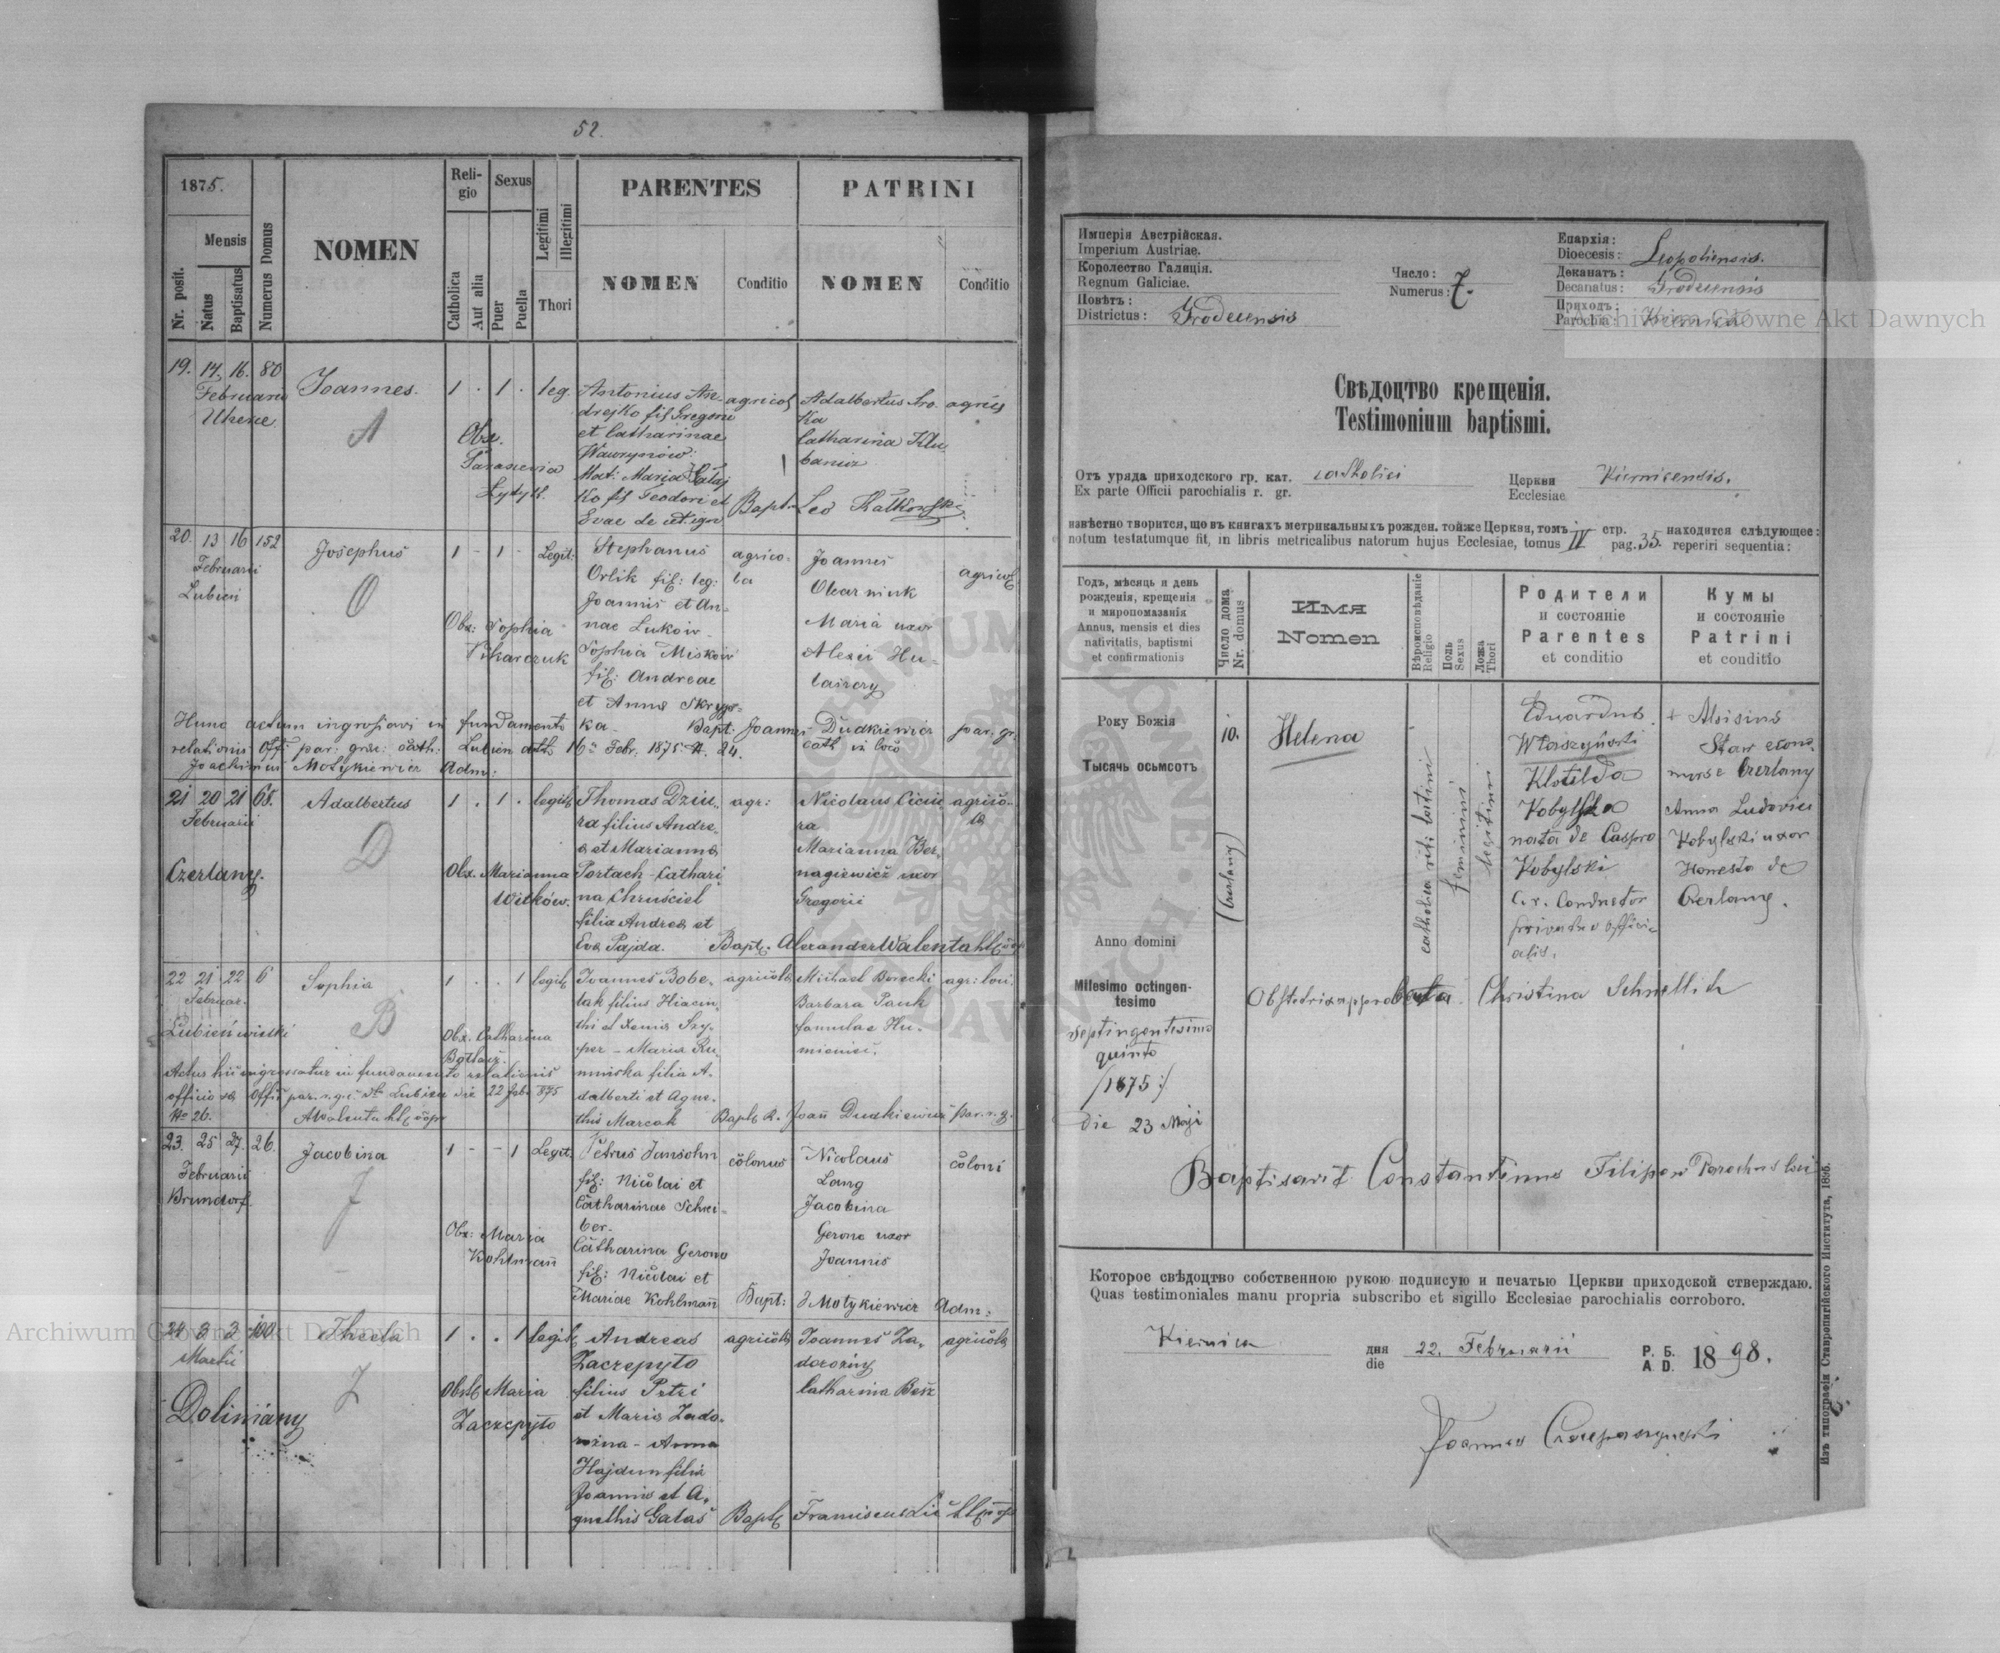 52.
1875.
Reli-
gio
Sexus
Legitimi
Illegitimi
PARENTES
PATRINI
Nr. posit.
Mensis
Natus
Baptisatus
Numerus Domus
NOMEN
Catholica
Aut alia
Puer
Puella
Thori
NOMEN
Conditio
NOMEN
Conditio
19. 14. 16. 80
Februarii
Joannes.
A
1 . 1 . leg.
Obx.
Parascevia
Antonius An-
drejko fil Gregorii
et Catharinae
Wawrynów:
Mat: Maria
Ko fil Teodori et
Evae de
agricol
Adalbertus
Ka
Catharina
agric
Bapt. Leo
20. 13 16 152
Februarii
Lubień
Josephus
O
1 - 1 - Legit:
Obx: Sophia
Stephanus
Orlik fil: leg:
Joannis et An-
nae Lukow
Sophia Miskow
fil: Andreae
et Annae Skryp-
ka.
agrico-
la
Joannes
Maria uxor
Alexii Hu-
agricol
Bapt: Joannes Dudkiewicz par. gr.
cath in loco
Hunc actum ingrossavi in fundamento
relationis Off: par: graec: cath: Lubien ddto 16 Febr. 1875 N. 24.
Joachimus Motykiewicz Adm:
21 20 21 65.
Februarii
Czerlany.
Adalbertus
D
1 . 1 . legit
Obx. Marianna
Witków.
Thomas Dziu-
ra filius Andre-
a et Marianna
Portach - Cathari-
na Chruściel
filia Andrea et
Eva Pajda.
agr:
Nicolaus
ra
Marianna Ber-
nagiewicz uxor
Gregorii
agrico-
la
Bapt. Alexander Walenta
22 21 22 6
Februar.
Lubień wielki
Sophia
B
1 . . 1 legit
Obx. Catharina
Joannes Bobe-
lak filius Hiacin-
thi et Xenia Szy-
per - Maria Ru-
minska filia A-
dalberti et Agne-
this Marcak
agricola
Michael Borecki
Barbara Pauk
famulae Hu-
agr: loci.
Actus hic ingrossatur in fundamento relationis
officiosa Offi par. r. g. c. de Lubien die 22 Feb. 875
No 26. AWalenta
Bapt. R. Joan Dudkiewicz par. r. g.
23. 25 27. 26.
Februarii
Brundorf.
Jacobina
J
1 - - 1 Legit.
Obx: Maria
Kohlmañ
Petrus Jansohn
fil: Nicolai et
Catharinae Schrei-
ber.
Catharina Gerono
fil: Nicolai et
Mariae Kohlmañ
colonus
Nicolaus
Lang
Jacobina
Gerono uxor
Joannis
coloni
Bapt: JMotykiewicz Adm:
24 3 3 100
Martii
Doliniany
Thecla
Z
1 . . 1 legit
Obst Maria
Zaczepyto
Andreas
Zaczepyto
filius Petri
et Maria Zado-
rożna - Anna
Hajdun filia
Joannis et A-
gnethis Galas
agricola
Joannes Za-
dorożny
Catharina
agricola
Bapt Franciscus
Имперія Австрійская.
Imperium Austriae.
Королество Галиція.
Regnum Galiciae.
Повѣтъ:
Districtus: Grodecensis
Число:
Numerus: 7.
Епархія:
Dioecesis: Leopoliensis.
Деканатъ:
Decanatus: Grodecensis
Приходъ:
Parochia: Kiernica
Свѣдоцтво крещенія.
Testimonium baptismi.
Отъ уряда приходского гр. кат.
Ex parte Officii parochialis r. gr. catholici
Церкви
Ecclesiae Kiernicensis.
извѣстно творится, що въ книгахъ метрикальныхъ рожден. тойже Церкви, томъ стр. находится слѣдующее:
notum testatumque fit, in libris metricalibus natorum hujus Ecclesiae, tomus IV pag. 35. reperiri sequentia:
Годъ, мѣсяць и день
рожденія, крещенія
и миропомазанія
Annus, mensis et dies
nativitatis, baptismi
et confirmationis
Число дома
Nr. domus
Имя
Nomen
Вѣроисповѣданіе
Religio
Полъ
Sexus
Ложа
Thori
Родители
и состояніе
Parentes
et conditio
Кумы
и состояніе
Patrini
et conditio
Року Божія
Тысячь осьмсотъ
Anno domini
Milesimo octingen-
tesimo
septingentesimo
quinto
/1875:/
die 23 Maji
10.
(Czerlany)
Helena
catholica riti latini
feminini
legitimi
Eduardus
Klotilda
Kobylska
nata de Caspro
Kobylski
C. r. Conductor
privatus offici-
alis.
+ Aloisius
Staw econo-
Czerlany
Anna Ludovici
Kobylski uxor
Honesta de
Czerlany.
Obstetrix approbata. Christina Schnellich
Baptisavit Constantinus Filipow Parochus loci
Которое свѣдоцтво собственною рукою подписую и печатью Церкви приходской стверждаю.
Quas testimoniales manu propria subscribo et sigillo Ecclesiae parochialis corroboro.
Kiernica
дня
die 22. Februarii
Р. Б.
A. D. 1898.
Joannes
Изъ типографіи Ставропигійского Института, 1896.
Archiwum Główne Akt Dawnych
Archiwum Główne Akt Dawnych
ARCHIWUM GŁÓWNE AKT DAWNYCH